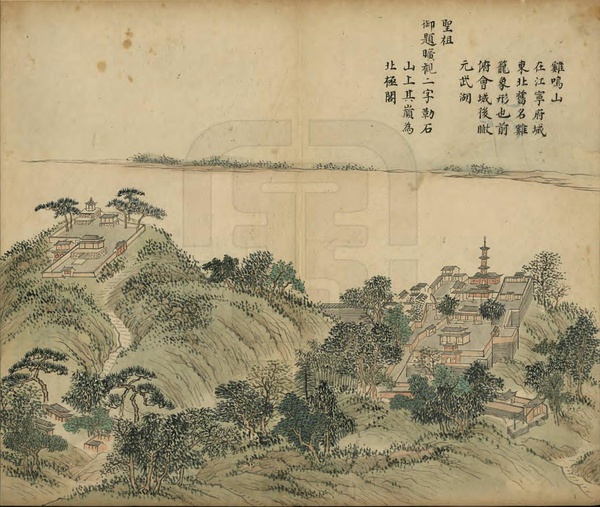 雞鳴山
在江寧府城
東北舊名雞
籠象形也前
俯會城後瞰
元武湖
聖祖
御題曠觀二字勒石
山上其巔為
北極閣